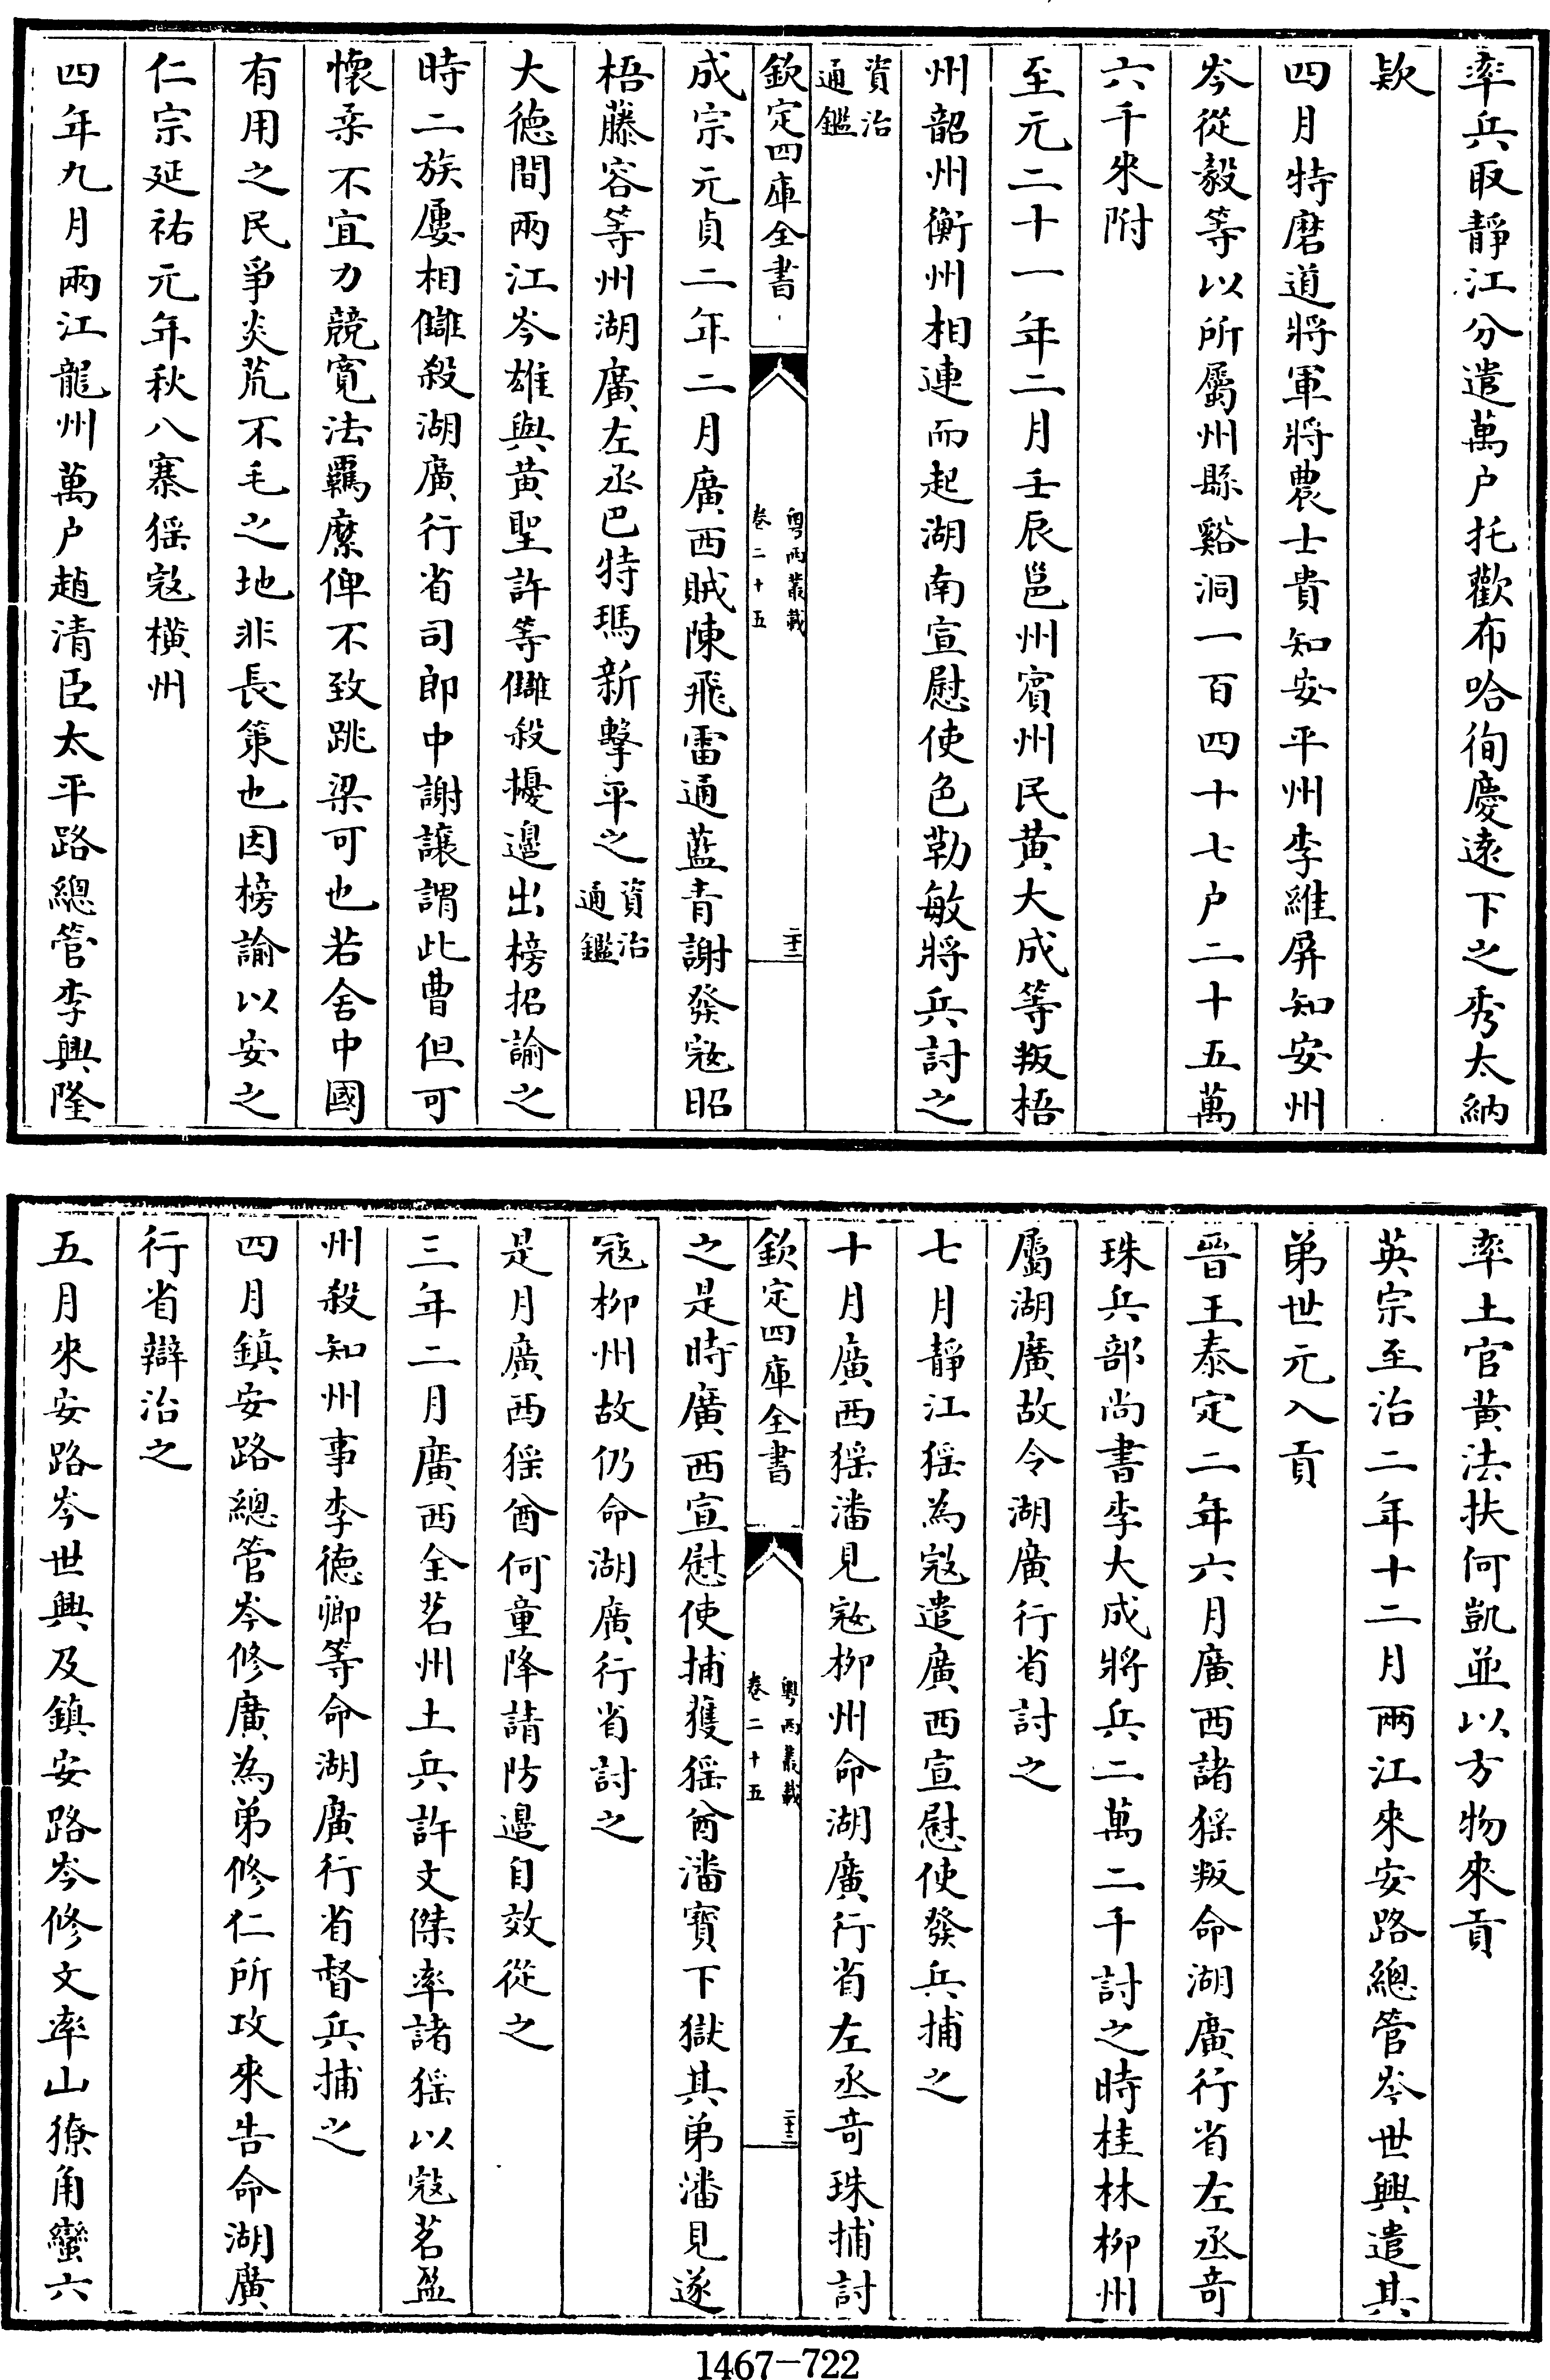 率兵取靜江分遣萬户托歡布哈徇慶逺下之秀太納
欵
四月特磨道將軍將農士貴知安平州李維屏知安州
岑從毅等以所屬州縣谿洞一百四十七户二十五萬
六千來附
至元二十一年二月壬辰邕州賔州民黄大成等叛梧
州韶州衡州相連而起湖南宣慰使色勒敏將兵討之
資治
通鑑
欽定四庫全書
粤西叢載
卷二十五
二十二
成宗元貞二年二月廣西賊陳飛雷通藍青謝發宼昭
梧藤容等州湖廣左丞巴特瑪新擊平之資治
通鑑
大德間兩江岑雄與黄聖許等讎殺擾邉出榜招諭之
時二族屢相讎殺湖廣行省司郎中謝讓謂此曹但可
懷柔不宜力競寛法羈縻俾不致跳梁可也若舍中國
有用之民爭炎荒不毛之地非長策也因榜諭以安之
仁宗延祐元年秋八寨猺宼橫州
四年九月兩江龍州萬户趙清臣太平路總管李興隆
率土官黄法扶何凱並以方物來貢
英宗至治二年十二月兩江來安路總管岑世興遣其
弟世元入貢
晉王泰定二年六月廣西諸猺叛命湖廣行省左丞竒
珠兵部尚書李大成將兵二萬二千討之時桂林柳州
屬湖廣故令湖廣行省討之
七月靜江猺為宼遣廣西宣慰使發兵捕之
十月廣西猺潘見宼柳州命湖廣行省左丞竒珠捕討
欽定四庫全書
粤西叢載
卷二十五
二十三
之是時廣西宣慰使捕獲猺酋潘寳下獄其弟潘見遂
冦柳州故仍命湖廣行省討之
是月廣西猺酋何童降請防邉自效從之
三年二月廣西全茗州土兵許文傑率諸猺以宼茗盈
州殺知州事李德卿等命湖廣行省督兵捕之
四月鎮安路總管岑修廣為弟修仁所攻來告命湖廣
行省辯治之
五月來安路岑世興及鎮安路岑修文率山獠角蠻六
1467-722